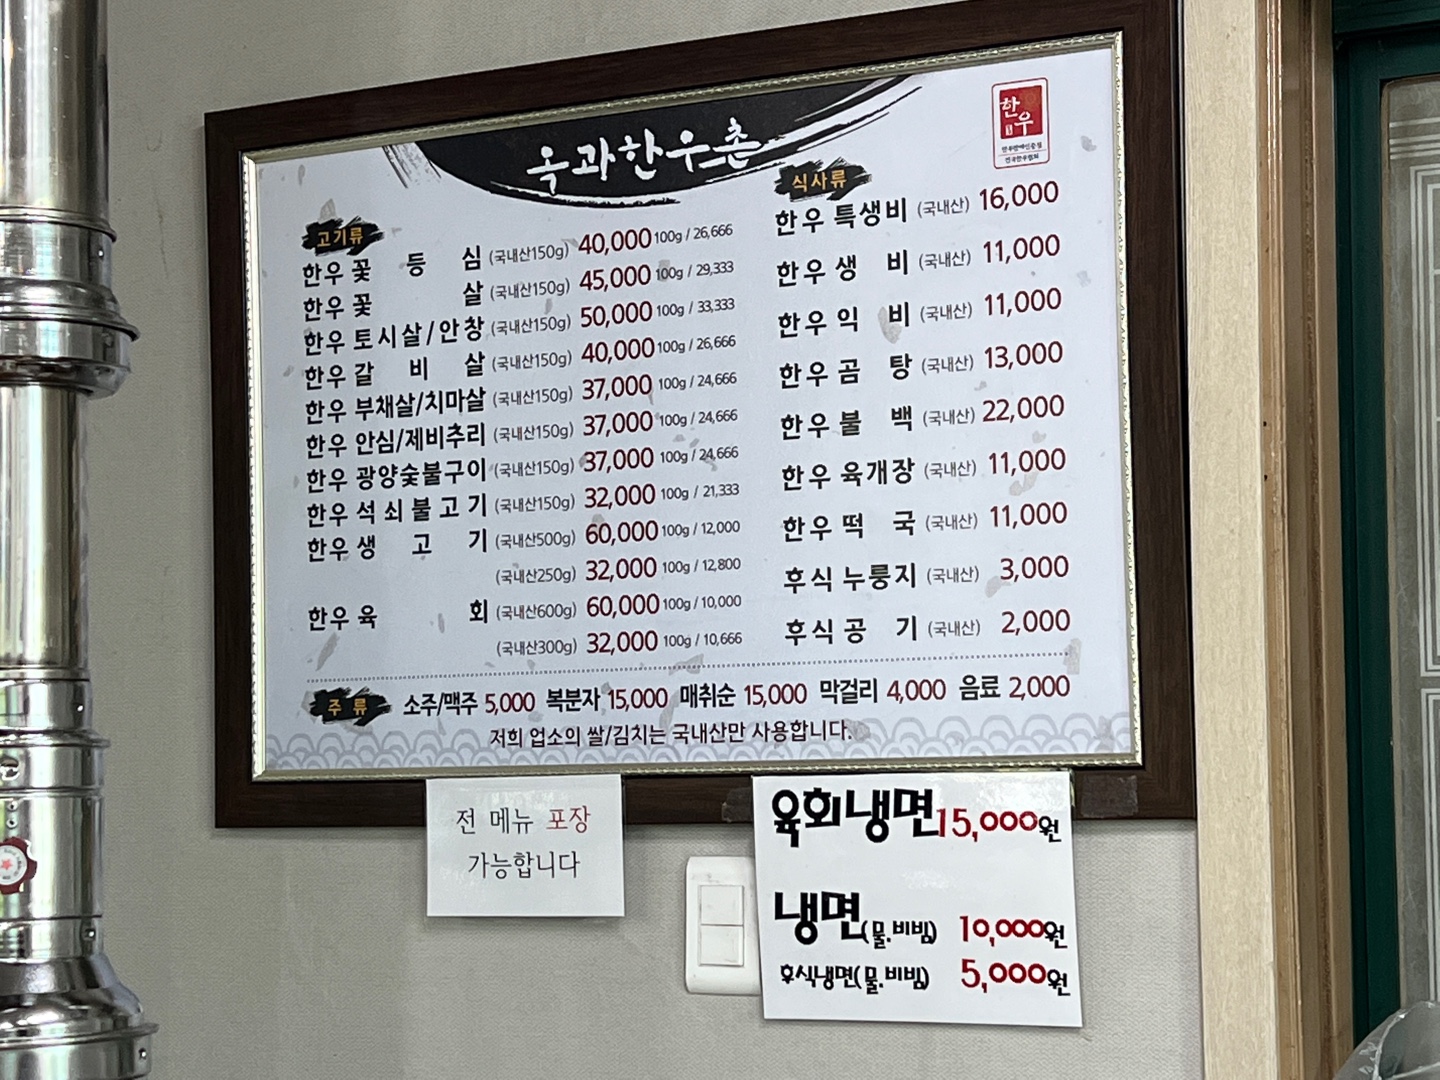 옥과한우촌
한우
고기류
한우 꽃 등 심 (국내산150g) 40,000 100g / 26,666
한우 꽃 살 (국내산150g) 45,000 100g / 29,333
한우 토시살/안창 (국내산150g) 50,000 100g / 33,333
한우 갈 비 살 (국내산150g) 40,000 100g / 26,666
한우 부채살/치마살 (국내산150g) 37,000 100g / 24,666
한우 안심/제비추리 (국내산150g) 37,000 100g / 24,666
한우 광양숯불구이 (국내산150g) 37,000 100g / 24,666
한우 석쇠불고기 (국내산150g) 32,000 100g / 21,333
한우 생 고 기 (국내산500g) 60,000 100g / 12,000
(국내산250g) 32,000 100g / 12,800
한우 육 회 (국내산600g) 60,000 100g / 10,000
(국내산300g) 32,000 100g / 10,666
식사류
한우 특생비 (국내산) 16,000
한우 생 비 (국내산) 11,000
한우 익 비 (국내산) 11,000
한우 곰 탕 (국내산) 13,000
한우 불 백 (국내산) 22,000
한우 육개장 (국내산) 11,000
한우 떡 국 (국내산) 11,000
후식 누룽지 (국내산) 3,000
후식 공 기 (국내산) 2,000
주 류 소주/맥주 5,000 복분자 15,000 매취순 15,000 막걸리 4,000 음료 2,000
저희 업소의 쌀/김치는 국내산만 사용합니다.
전 메뉴 포장
가능합니다
육회냉면 15,000원
냉면(물.비빔) 10,000원
후식냉면(물.비빔) 5,000원